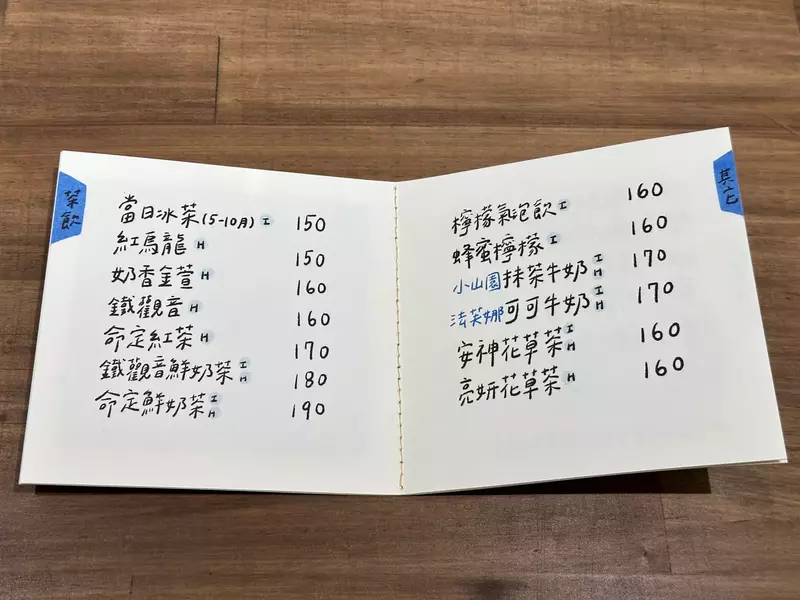 茶飲
當日冰茶(5-10月) I 150
紅烏龍 H 150
奶香金萱 H 160
鐵觀音 H 160
命定紅茶 H 170
鐵觀音鮮奶茶 I H 180
命定鮮奶茶 I H 190
其它
檸檬氣泡飲 I 160
蜂蜜檸檬 I 160
小山園抹茶牛奶 I H 170
法芙娜可可牛奶 I H 170
安神花草茶 I H 160
亮妍花草茶 H 160